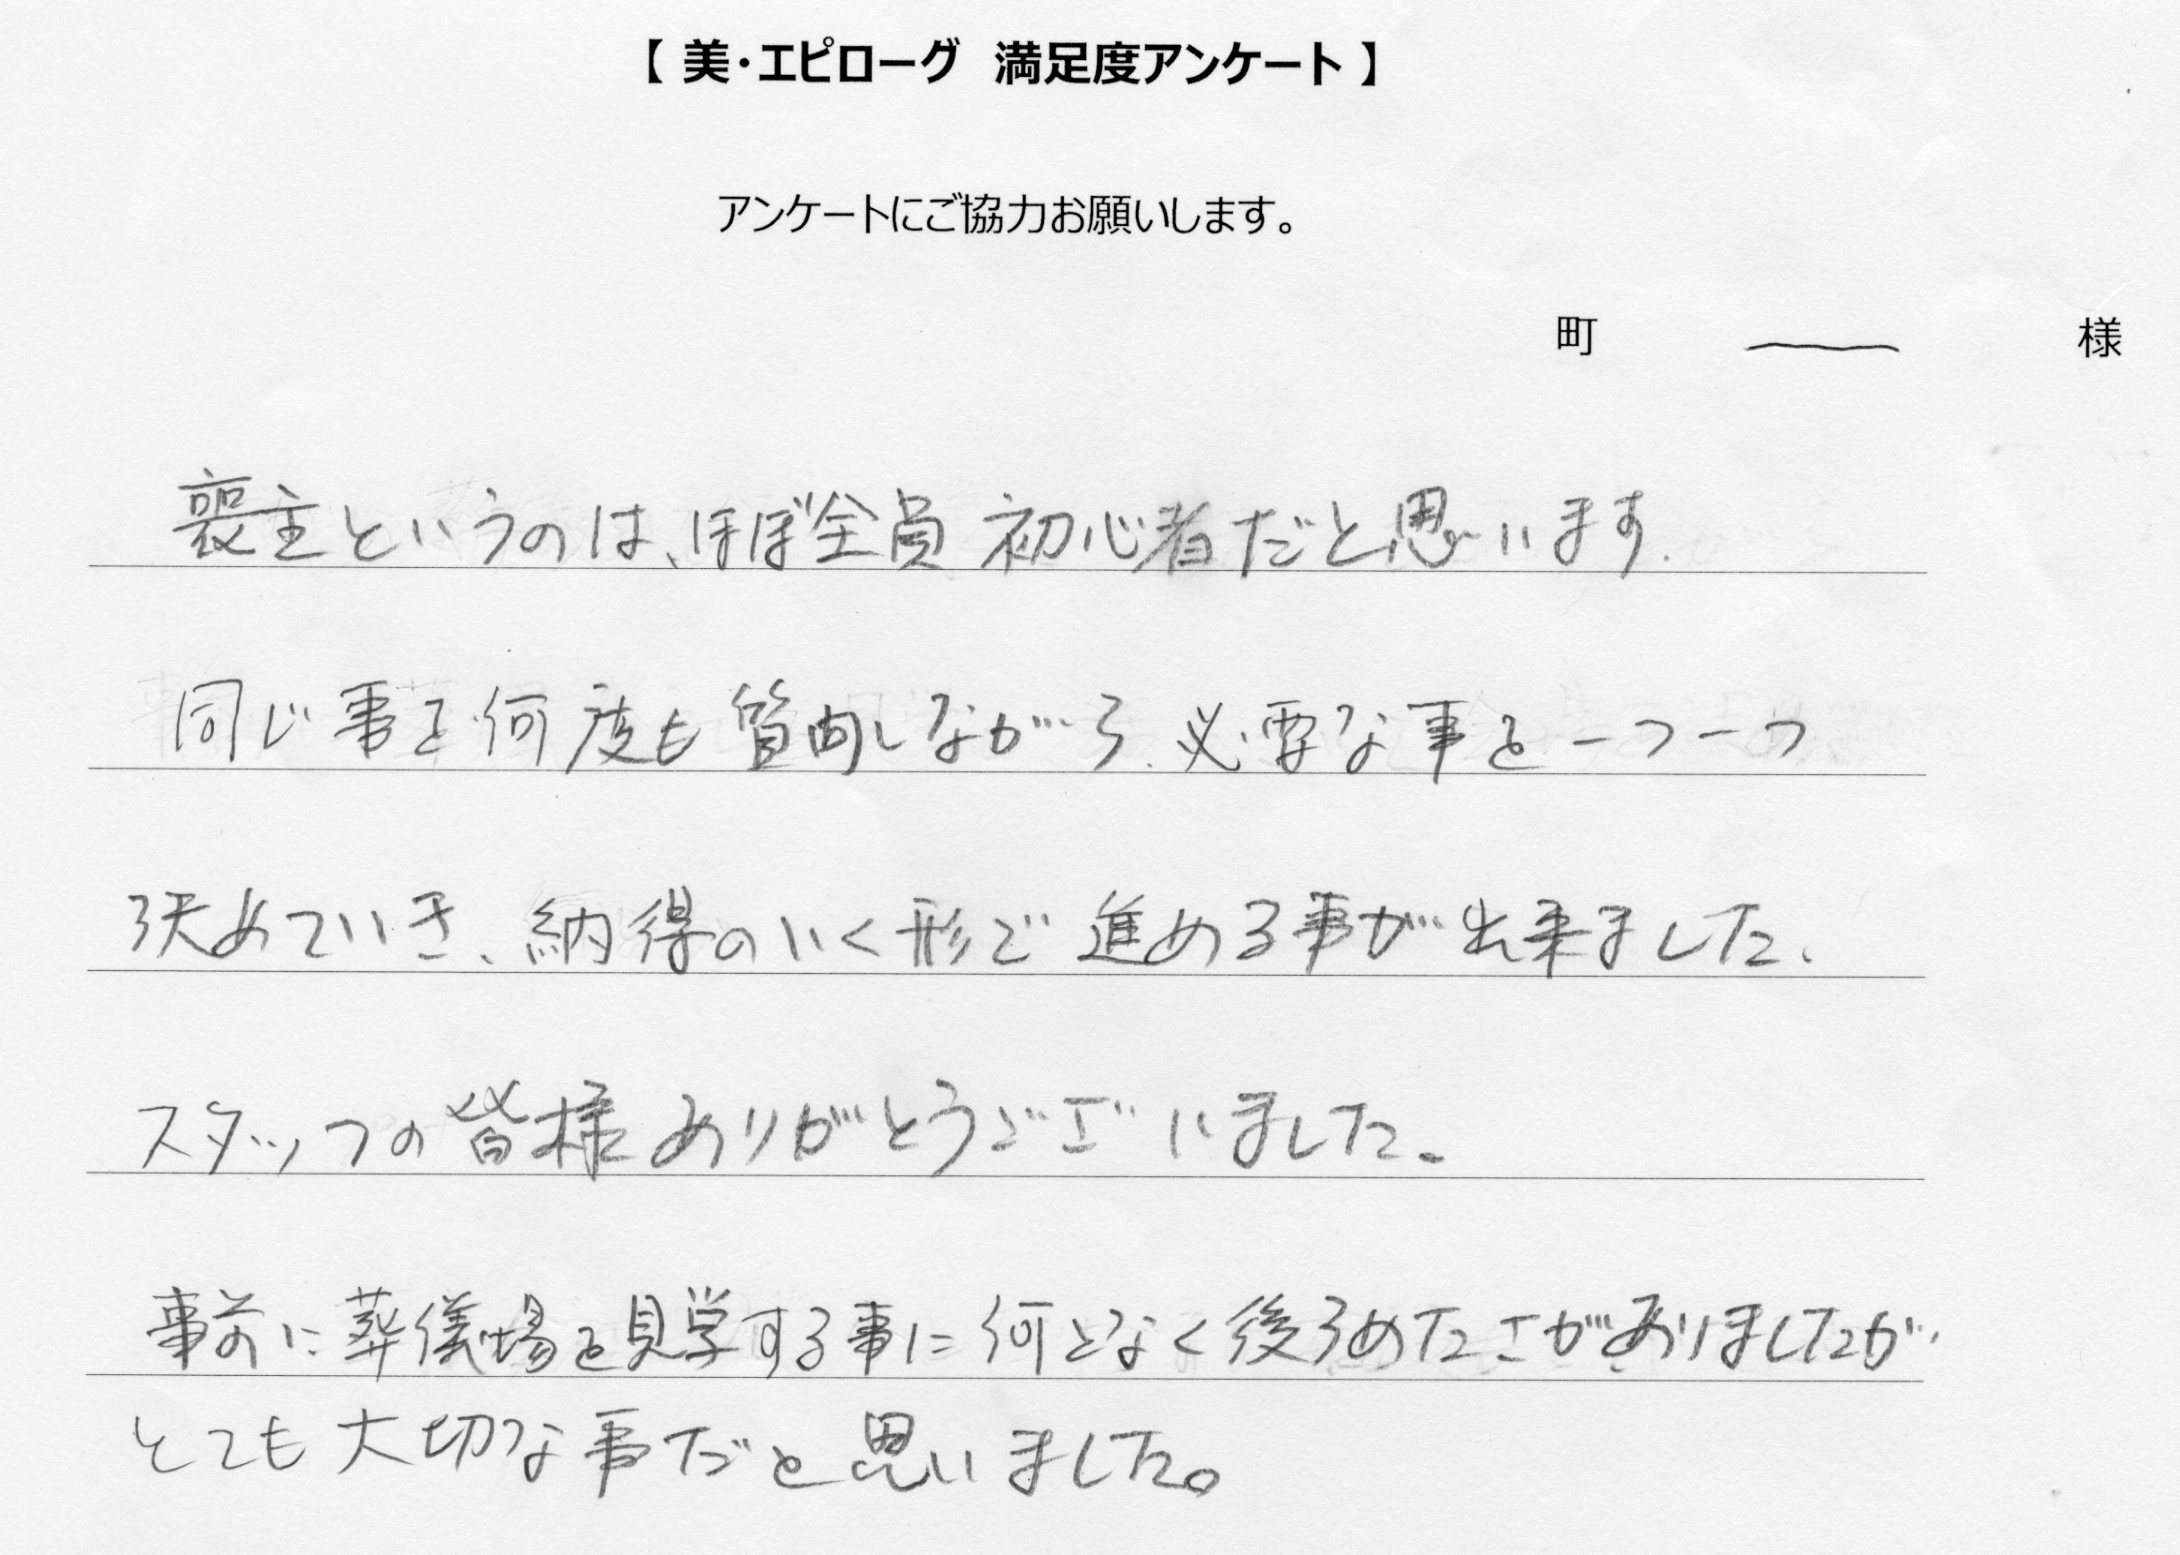 【 美・エピローグ　満足度アンケート 】
アンケートにご協力お願いします。
町　　　　様
喪主というのは、ほぼ全員 初心者だと思います.
同じ事を何度も質問しながら、必要な事を一つ一つ
決めていき、納得のいく形で 進める事が出来ました、
スタッフの皆様ありがとうございました。
事前に葬儀場を見学する事に何となく後ろめたさがありましたが、
とても大切な事だと思いました。